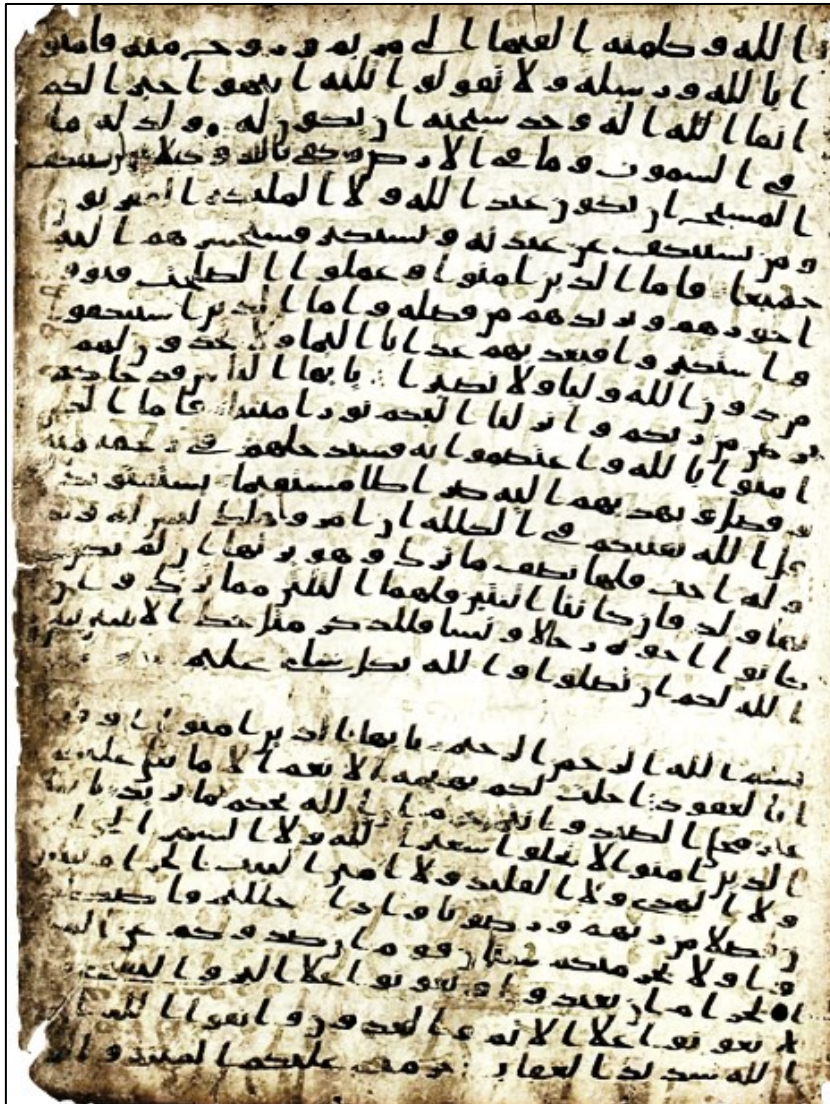 الله و كلمته القيها الى مريم و روح منه فامنو
ا بالله و رسله و لا تقولوا ثلثة انتهوا خيرا لكم
انما الله اله وحد سبحنه ان يكون له ولد له ما
في السموت و ما في الارض و كفى بالله وكيلا لن يستنكف
المسيح ان يكون عبدا لله و لا الملئكة المقربون
و من يستنكف عن عبدته و يستكبر فسيحشرهم اليه
جميعا فاما الذين امنوا و عملوا الصلحت فيوفيهم
اجورهم و يزيدهم من فضله و اما الذين استنكفوا
و استكبروا فيعذبهم عذابا اليما ولا يجدون لهم
من دون الله وليا ولا نصيرا يايها الناس قد جاكم
برهن من ربكم و انزلنا اليكم نورا مبينا فاما الذين
امنوا بالله و اعتصموا به فسيدخلهم في رحمة منه
و فضل و يهديهم اليه صراطا مستقيما يستفتونك
قل الله يفتيكم في الكللة ان امروا هلك ليس له ولد
و له اخت فلها نصف ما ترك و هو يرثها ان لم يكن
لها ولد فان كانتا اثنتين فلهما الثلثن مما ترك و ان
كانوا اخوة رجالا و نسا فللذكر مثل حظ الانثيين يبين
الله لكم ان تضلوا و الله بكل شاى عليم
بسم الله الرحمن الرحيم يايها الذين امنوا اوفو
ا بالعقود احلت لكم بهيمة الانعم الا ما يتلى عليكم
غير محلى الصيد و انتم حرم ان الله يحكم ما يريد يايها
الذين امنوا لا تحلوا شعئر الله ولا الشهر الحرام
ولا الهدى ولا القلئد ولا امين البيت الحرام يبتغون
فضلا من ربهم و رضونا و اذا حللتم فاصطدوا
و لا يجرمنكم شنان قوم ان صدوكم عن المسجد
الحرام ان تعتدوا و تعونوا على البر و التقوى و
لا تعونوا على الاثم و العدون و اتقوا الله ان
الله شديد العقاب حرمت عليكم الميتة و الدم